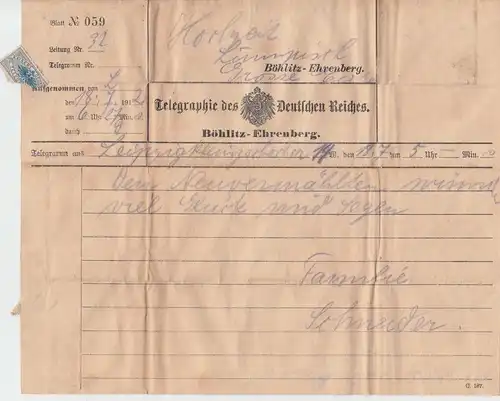 Blatt № 059
Leitung Nr. 32
Telegramm Nr.
Aufgenommen von
den 18. 7. 191
um 6 Uhr Min.
durch
Hochzeit
Böhlitz-Ehrenberg.
Telegraphie des Deutschen Reiches.
Böhlitz-Ehrenberg.
Telegramm aus W. den 18.7 um 5 Uhr — Min.
Den Neuvermählten wünscht
viel Glück und Segen
Familie
Schneider.
C. 187.